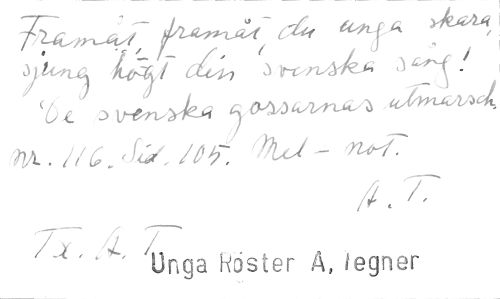 Framåt, framåt, du unga skara,
sjung högt din svenska sång!
De svenska gossarnas utmarsch.
nr. 116. Sid. 105. Mel - not.
A. T.
Tx. A. T.
Unga Röster A, Tegner